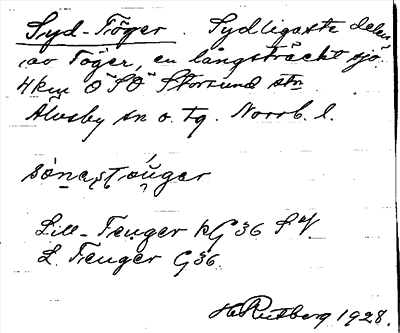 Syd-Töger. Sydligaste delen
av Töger, en långsträckt sjö
4 km ÖSÖ Storsund stn
Älvsby sn o. tg. Norrb. l.
sö̀nəstóuger
Lill-Teuger kG 36 SV
L. Teuger G 36.
H Rutberg 1928.